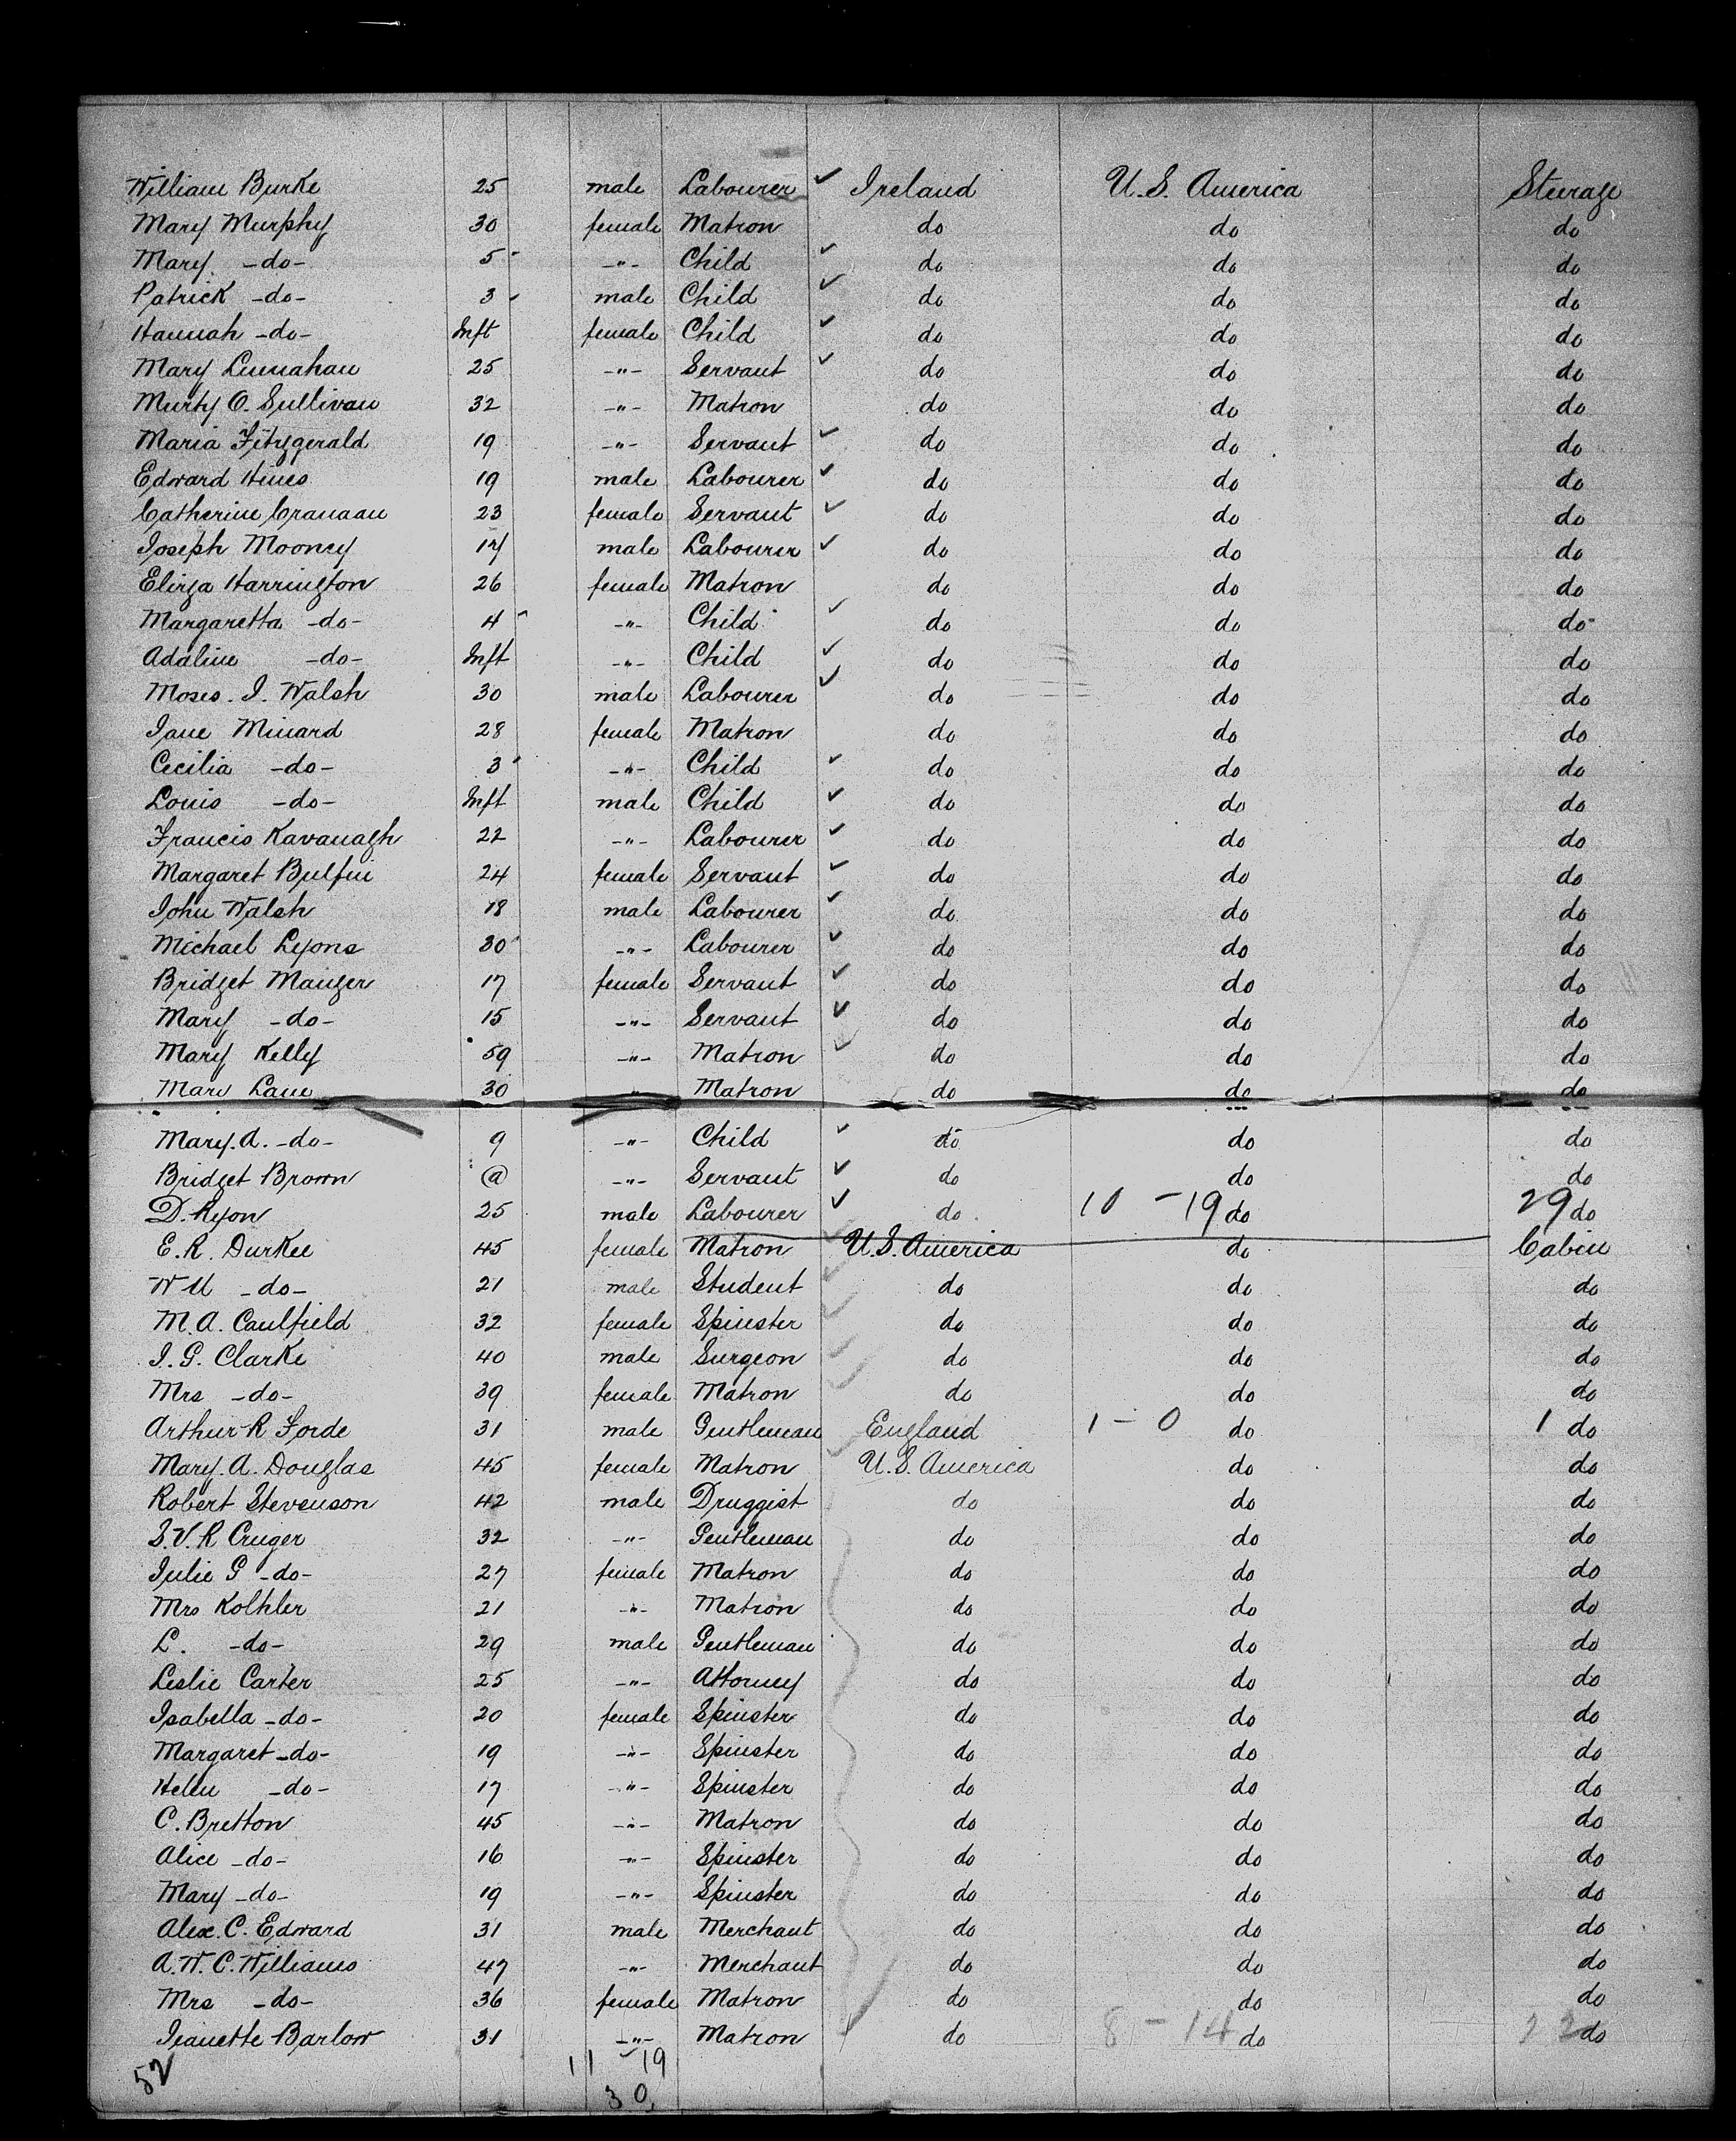 William Burke 25 male Labourer ✓ Ireland U.S. America Steerage
Mary Murphy 30 female Matron do do do
Mary -do- 5 -"- Child ✓ do do do
Patrick -do- 3 male Child ✓ do do do
Hannah -do- Inft female Child ✓ do do do
Mary Linnahan 25 -"- Servant ✓ do do do
Murty O. Sullivan 32 -"- Matron do do do
Maria Fitzgerald 19 -"- Servant ✓ do do do
Edward Hines 19 male Labourer ✓ do do do
Catherine Cranaan 23 female Servant ✓ do do do
Joseph Mooney 17 male Labourer ✓ do do do
Eliza Harrington 26 female Matron do do do
Margaretta -do- 4 -"- Child ✓ do do do
Adaline -do- Inft -"- Child ✓ do do do
Moses. J. Walsh 30 male Labourer ✓ do do do
Jane Minard 28 female Matron do do do
Cecilia -do- 3 -"- Child ✓ do do do
Louis -do- Inft male Child ✓ do do do
Francis Kavanagh 22 -"- Labourer ✓ do do do
Margaret Bulfin 24 female Servant ✓ do do do
John Walsh 18 male Labourer ✓ do do do
Michael Lyons 30 -"- Labourer ✓ do do do
Bridget Mauger 17 female Servant ✓ do do do
Mary -do- 15 -"- Servant ✓ do do do
Mary Kelly 59 -"- Matron ✓ do do do
Mary Lane 30 " Matron do do do
Mary. A. -do- 9 -"- Child ✓ do do do
Bridget Brown @ -"- Servant ✓ do do do
D. Ryon 25 male Labourer ✓ do 10 - 19 do 29 do
E. R. Durkee 45 female Matron U.S. America do Cabin
W U -do- 21 male Student do do do
M. A. Caulfield 32 female Spinster do do do
J. G. Clarke 40 male Surgeon do do do
Mrs -do- 39 female Matron do do do
Arthur R Forde 31 male Gentleman England 1 - 0 do 1 do
Mary. A. Douglas 45 female Matron U.S. America do do
Robert Stevenson 42 male Druggist do do do
S. V. R Cruger 32 -"- Gentleman do do do
Julie G -do- 27 female Matron do do do
Mrs Kolhler 21 -"- Matron do do do
L. -do- 29 male Gentleman do do do
Leslie Carter 25 -"- Attorney do do do
Isabella -do- 20 female Spinster do do do
Margaret -do- 19 -"- Spinster do do do
Helen -do- 17 -"- Spinster do do do
C. Bretton 45 -"- Matron do do do
Alice -do- 16 -"- Spinster do do do
Mary -do- 19 -"- Spinster do do do
Alex. C. Edward 31 male Merchant do do do
A. W. C. Williams 47 -"- Merchant do do do
Mrs -do- 36 female Matron do do do
Jeanette Barlow 31 -"- Matron do 8 - 14 do 22 do
52 11 - 19
30